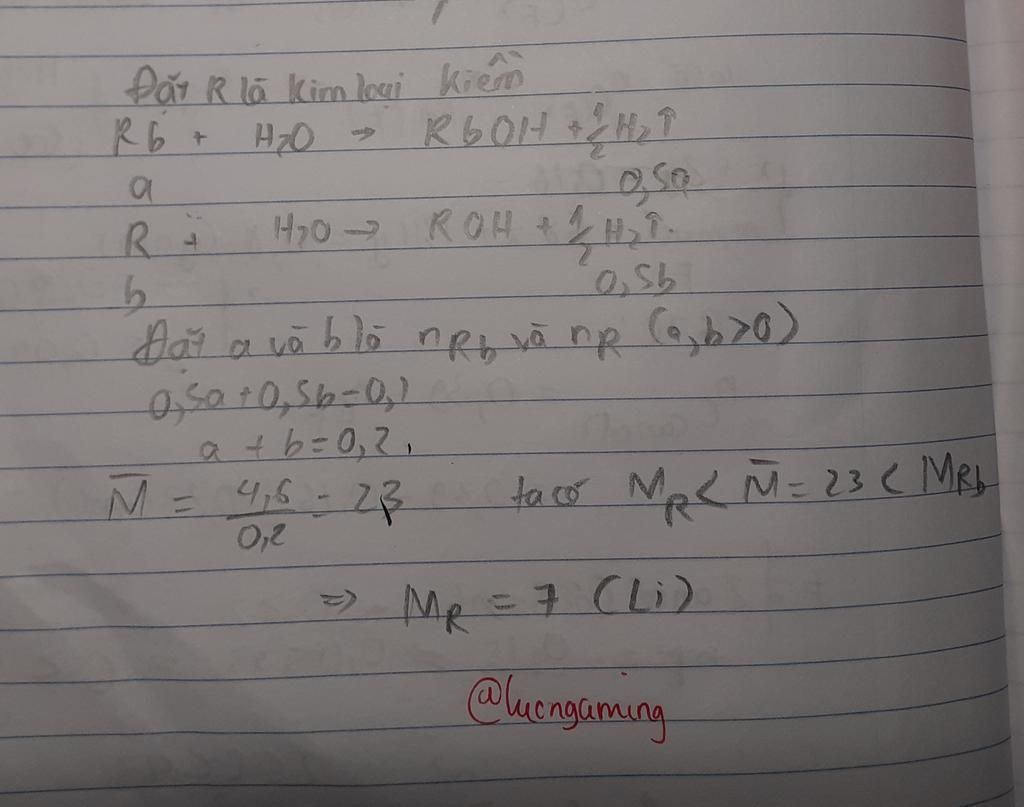 Đặt R là kim loại kiềm
Rb + H₂O → RbOH + 1/2 H₂↑
a 0,5a
R + H₂O → ROH + 1/2 H₂↑.
b 0,5b
Đặt a và b là nRb và nR (a,b>0)
0,5a+0,5b=0,1
a + b = 0,2.
M̄ = 4,6/0,2 = 23 ta có M_R < M̄ = 23 < M_Rb
⇒ M_R = 7 (Li)
@lucngaming